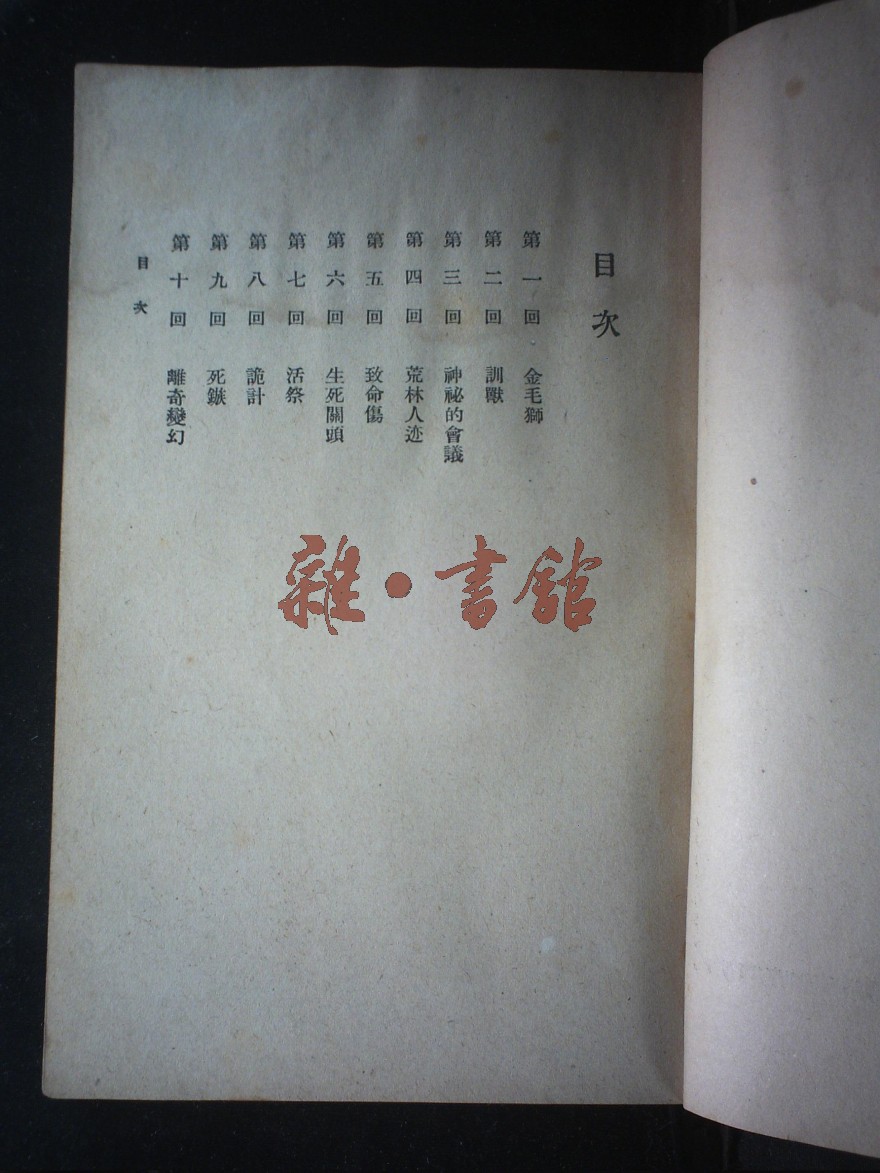 目次
第一回 金毛獅
第二回 訓獸
第三回 神祕的會議
第四回 荒林人迹
第五回 致命傷
第六回 生死關頭
第七回 活祭
第八回 詭計
第九回 死鏃
第十回 離奇變幻
目次
雜·書館